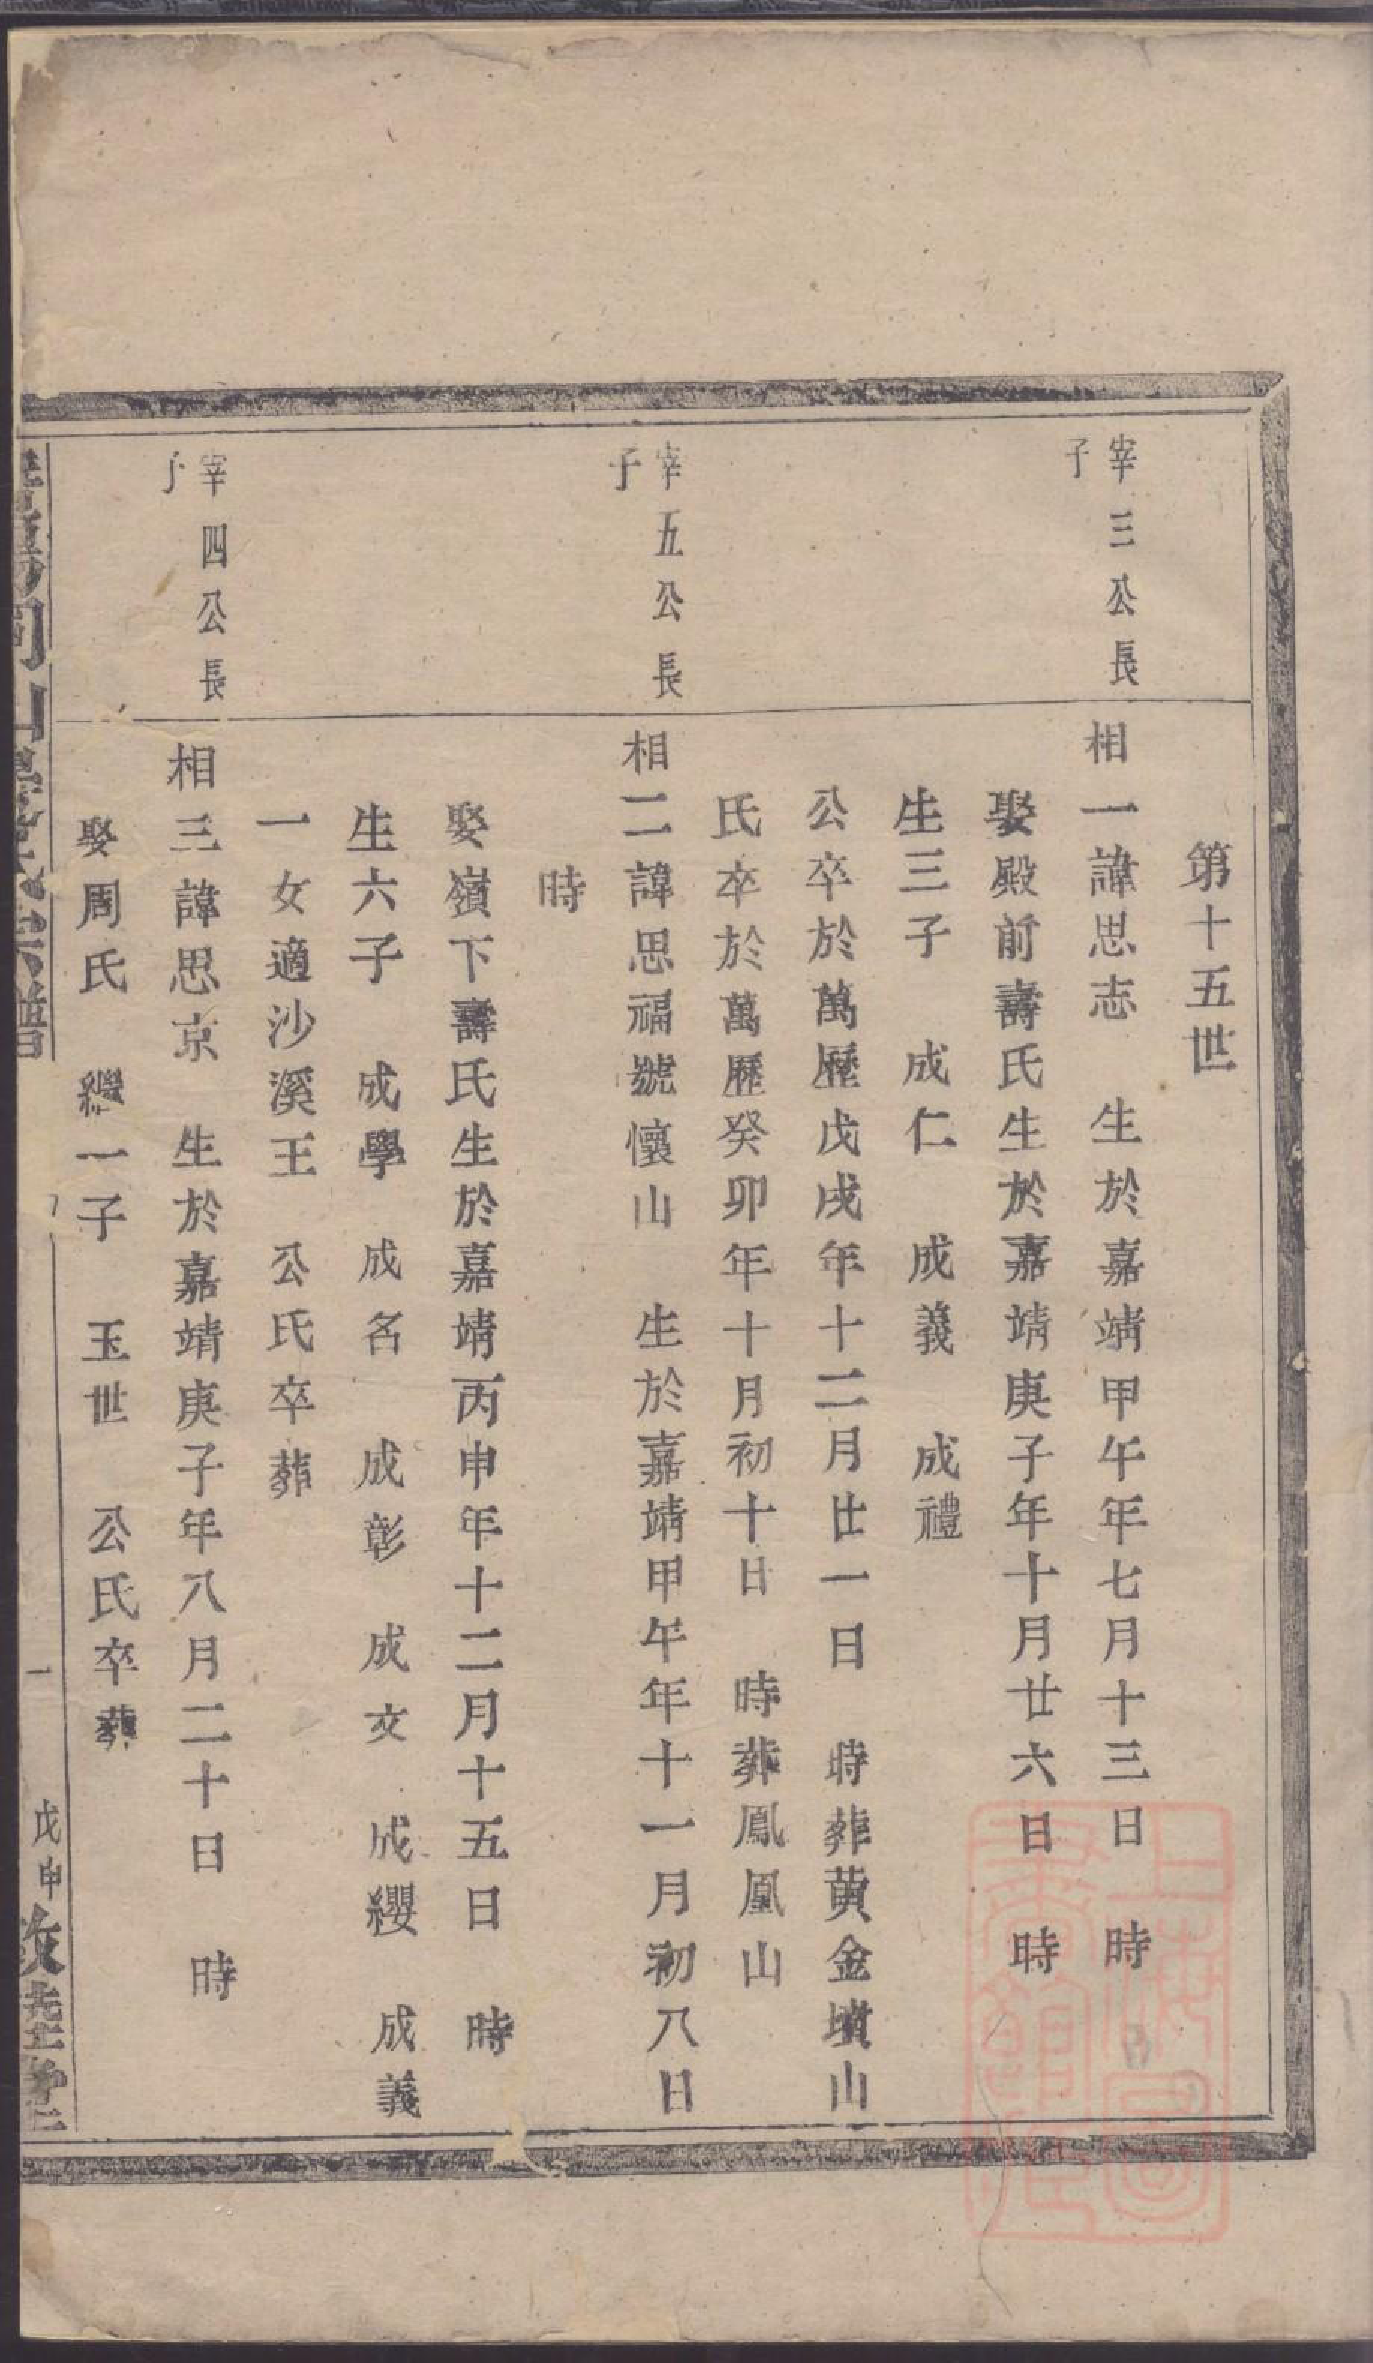 第十五世
宰三公長
子
相一諱思志　生於嘉靖甲午年七月十三日　時
娶殿前壽氏生於嘉靖庚子年十月廿六日　時
生三子　成仁　成義　成禮
公卒於萬歷戊戌年十二月廿一日　時葬黄金墳山
氏卒於萬歷癸卯年十月初十日　時葬鳳凰山
宰五公長
子
相二諱思福號懷山　生於嘉靖甲午年十一月初八日
時
娶嶺下壽氏生於嘉靖丙申年十二月十五日　時
生六子　成學　成名　成彰　成文　成纓　成義
一女適沙溪王　公氏卒葬
宰四公長
子
相三諱思京　生於嘉靖庚子年八月二十日　時
娶周氏　繼一子　玉世　公氏卒葬
山　氏宗譜
一
戊申
上海圖書館藏